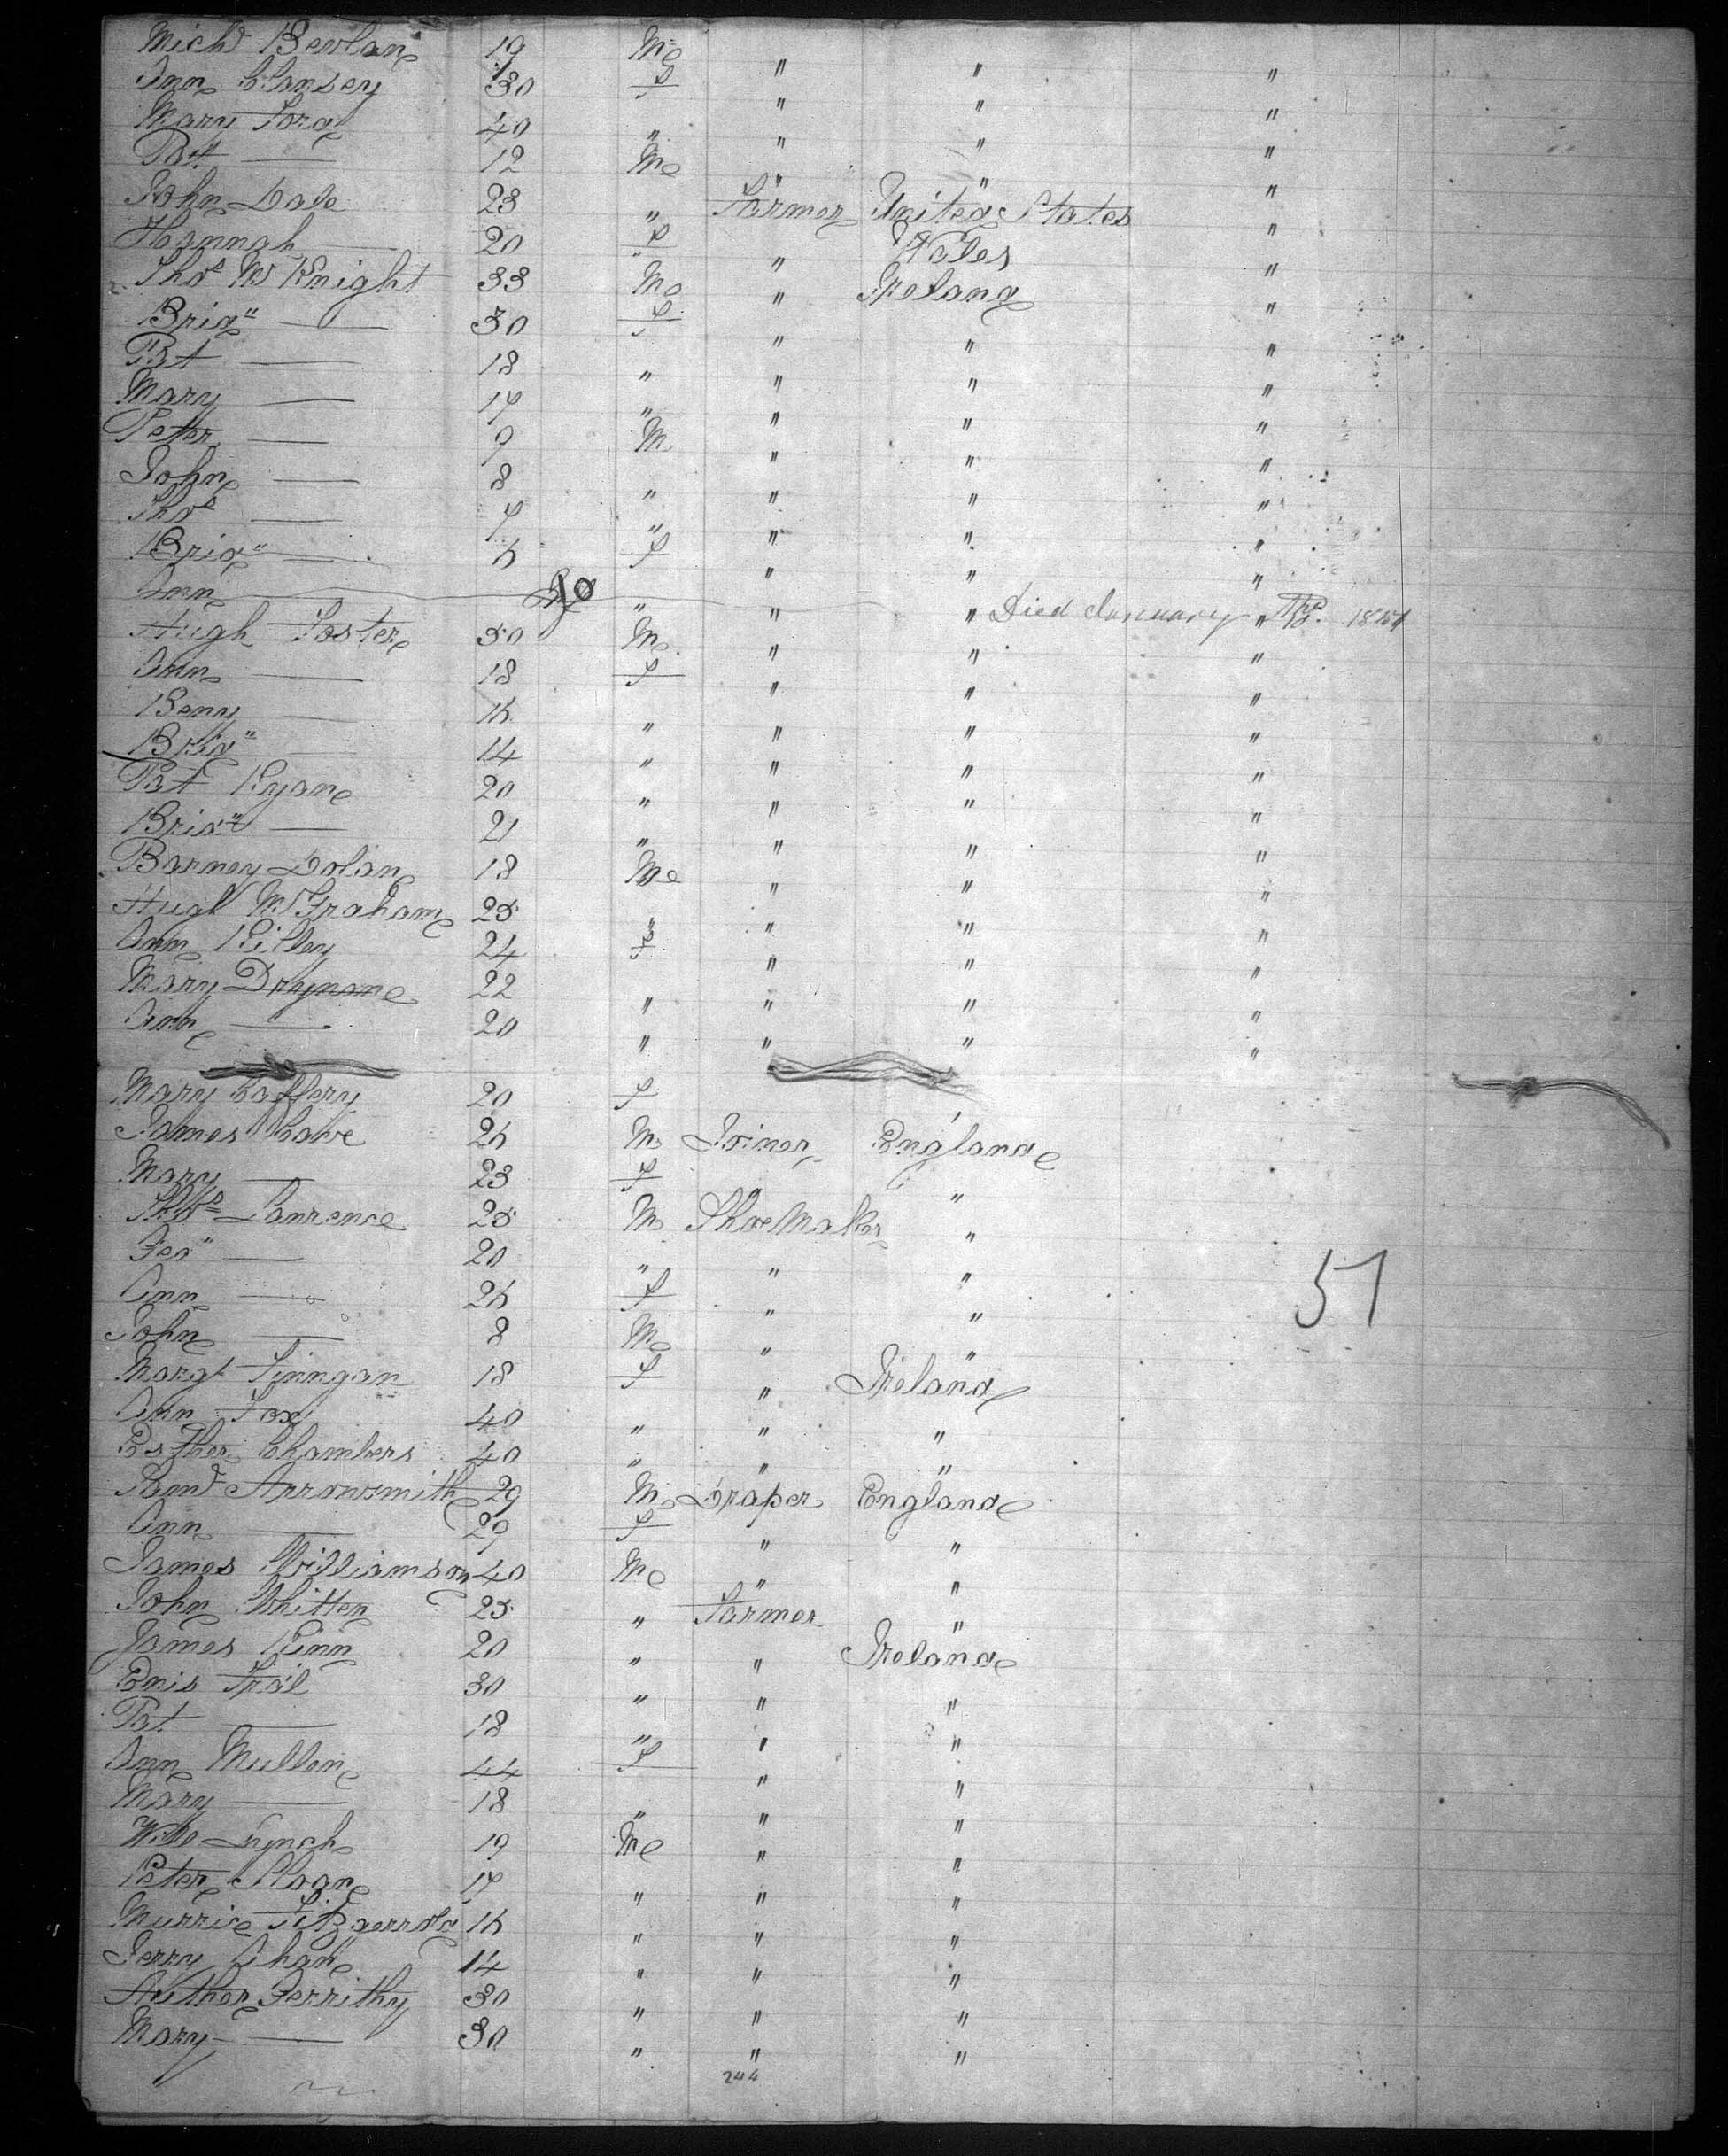 Mich^l Bevlan 19 M " " "
Ann Clansey 30 F " " "
Mary Ford 40 " " " "
Pat — 12 M " " "
John Dale 23 " Farmer United States "
Hannah — 20 F " Wales "
Tho^s McKnight 33 M " Ireland "
Brid" — 30 F " " "
Pat — 18 " " " "
Mary — 17 " " " "
Peter — 9 M " " "
John — 8 " " " "
Tho^s — 7 " " " "
Brid" — 6 F " " "
Ann — 10 " " " Died January " 1851
Hugh Foster 50 M " " "
Ann — 18 F " " "
Beny — 16 " " " "
Brid" — 14 " " " "
Pat Ryan 20 " " " "
Brid" — 21 " " " "
Barney Dolan 18 M " " "
Hugh McGraham 25 " " " "
Ann Rilley 24 F " " "
Mary Drynane 22 " " " "
Ann — 20 " " " "
Mary Caffery 20 F
James Cawe 26 M Joiner England
Mary — 23 F " "
Tho^s Lawrence 25 M Shoe Maker "
Geo" — 20 " " "
Ann — 26 F " "
John — 8 M " "
Marg^t Finngan 18 F " Ireland
Ann Fox 40 " " "
Esther Chambers 40 " " "
Sam^l Arrowsmith 29 M Draper England
Ann — 29 F " "
James Williamson 40 M " "
John Whitten 25 " Farmer "
James Kinn 20 " " Ireland
Enis Fral 30 " " "
Pat — 18 " " "
Ann Mullen 44 F " "
Mary — 18 " " "
Will Lynch 19 M " "
Peter Sloan 17 " " "
Murrice Fitzgerrald 16 " " "
Jerry 14 " " "
Auther Gerrithy 30 " " "
Mary — 30 " " "
57
244